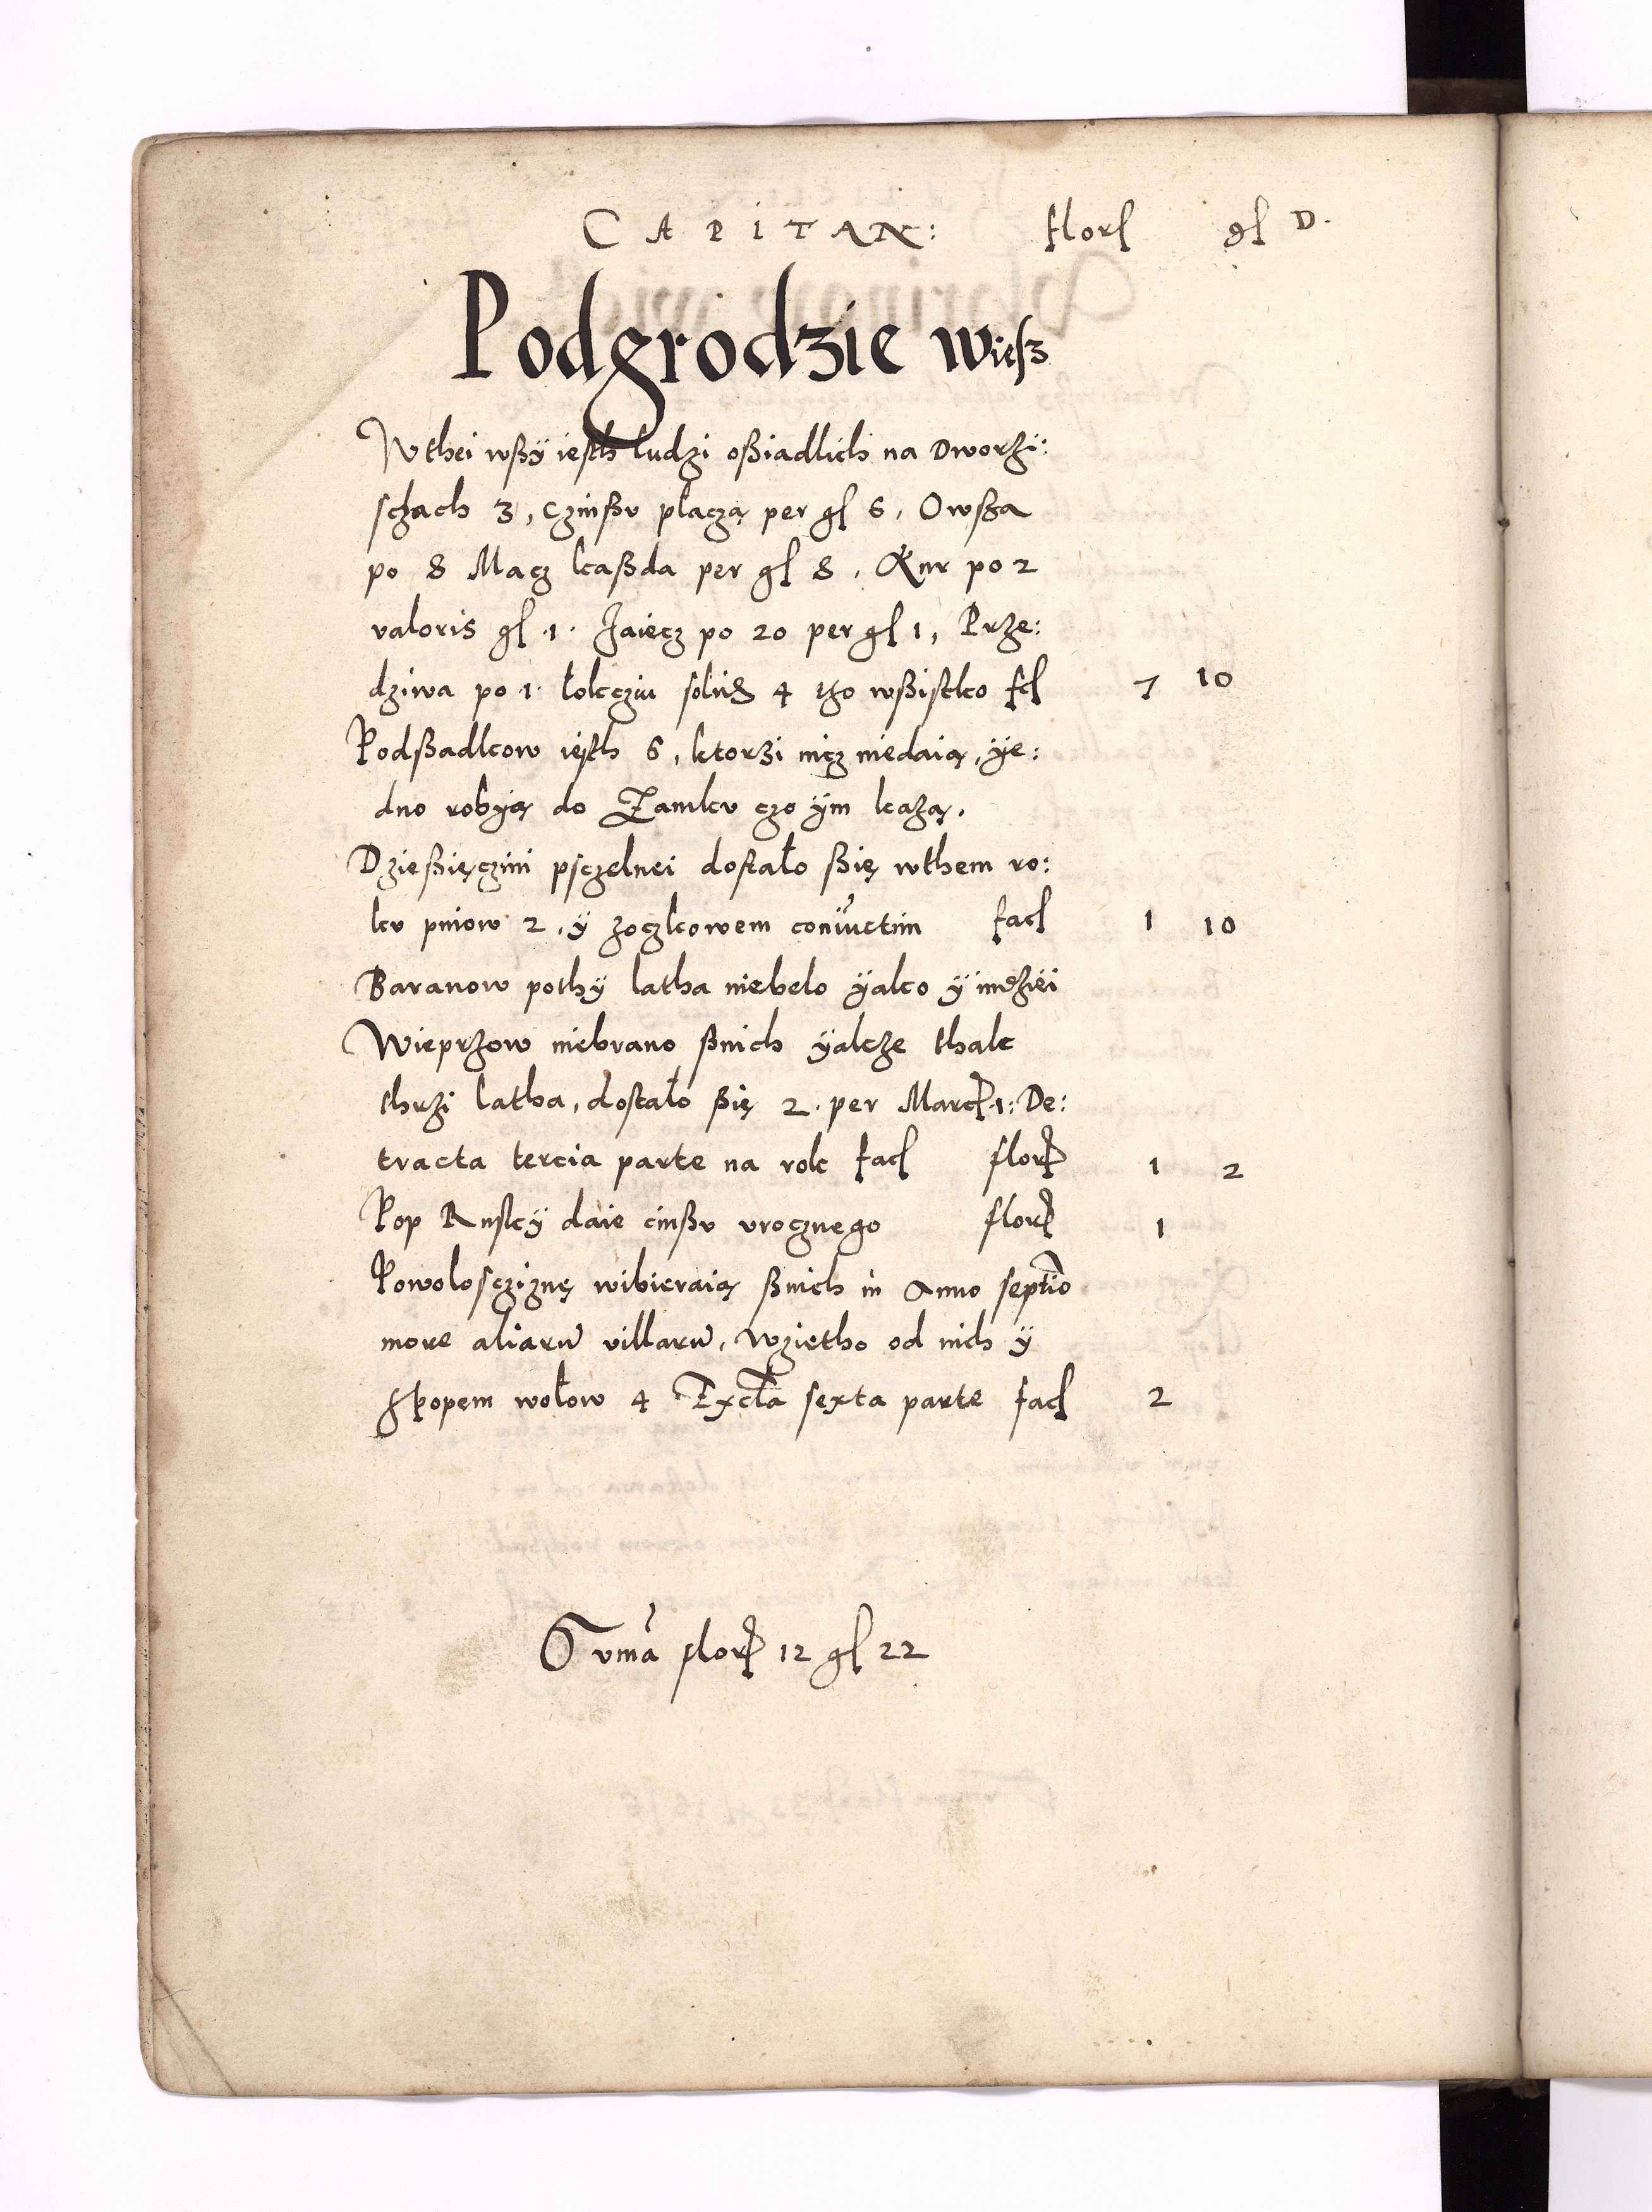 CAPITAN: flor gl D.
Podgrodzie wiesz
Wthei wßÿ iesth ludzi oßiadlich na Dworzi:
sczach 3, czinßv placzą per gl 6, Owßa
po 8 Macz kaßda per gl 8, Kur po 2
valoris gl .1. Jaiecz po 20 per gl 1, Prze:
dziwa po .1. łokcziu 4 tho wßistko fl 7 10
Podßadkow iesth 6, ktorzi nicz niedaią, ÿe:
dno robÿą do Zamkv czo ÿm każą,
Dzießięczini psczelnei dostało ßię wthem ro:
kv pniow 2, ÿ zoczkowem coniũctim facl 1 10
Baranow pothÿ latha niebelo ÿako ÿ indziei
Wieprzow niebrano ßnich ÿakże thak
thrzi latha, dostało ßię 2. per Marck 1: De:
tracta tercia parte na rok facl flor 1 2
Pop Ruskÿ daie cinßv vrocznego flor 1
Powoloscziznę wibieraią ßnich in Anno septio
more aliarũ villarũ, Wzietho od nich ÿ
Spopem wołow 4 Excta sexta parte facl 2
Suma flor 12 gl 22